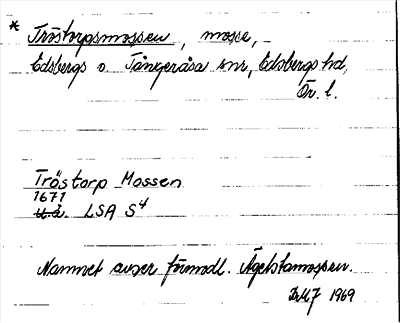 * Tröstorpsmossen, mosse,
Edsbergs o. Tångeråsa snr, Edsbergs hd,
Ör. l.
Tröstorp Mossen
1671
u.å. LSA S4
Namnet avser förmodl. Ägelstamossen.
1969